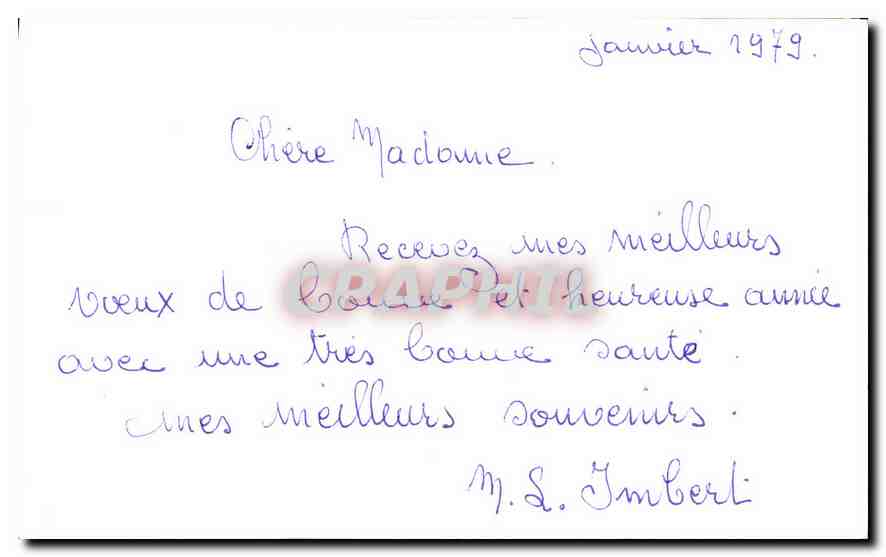 janvier 1979.
Chère Madame.
Recevez mes meilleurs
vœux de bonne et heureuse année
avec une très bonne santé.
mes meilleurs souvenirs.
M. L. Imbert
CPAPHIL